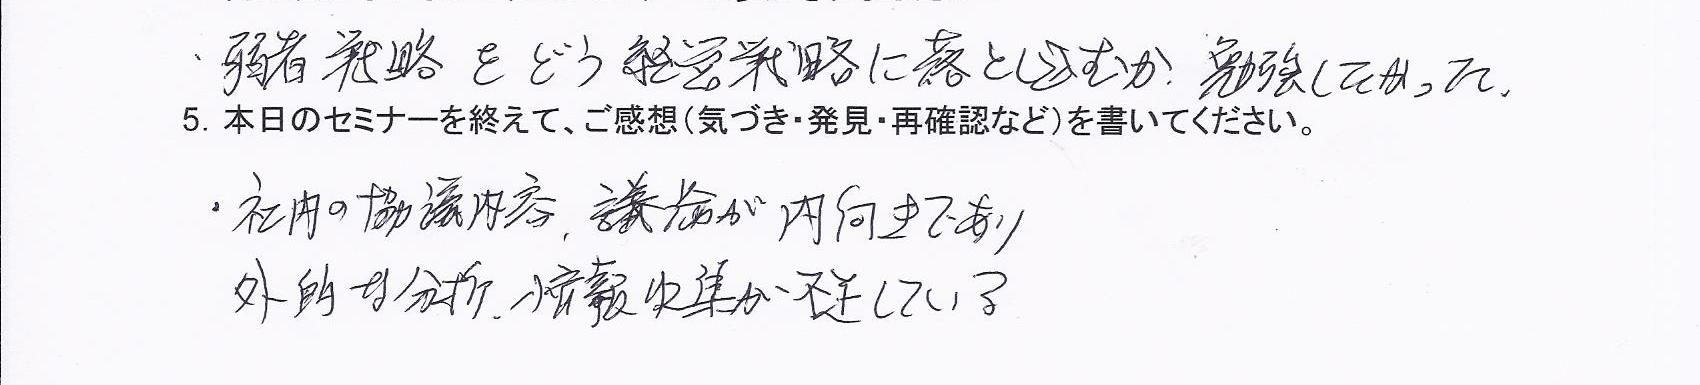 ・弱者戦略をどう経営戦略に落とし込むか、勉強したかった、
5. 本日のセミナーを終えて、ご感想(気づき・発見・再確認など)を書いてください。
・社内の協議内容、議論が内向きであり
外的な分析、情報収集が不足している